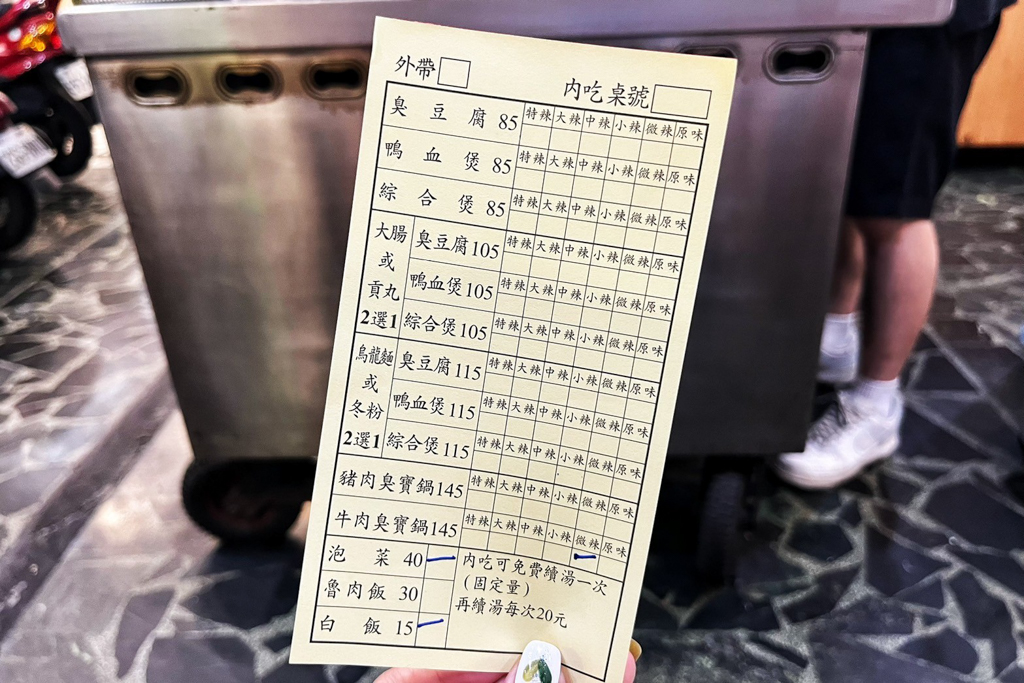 外帶 內吃桌號
臭豆腐 85 特辣 大辣 中辣 小辣 微辣 原味
鴨血煲 85 特辣 大辣 中辣 小辣 微辣 原味
綜合煲 85 特辣 大辣 中辣 小辣 微辣 原味
大腸或貢丸2選1
臭豆腐 105 特辣 大辣 中辣 小辣 微辣 原味
鴨血煲 105 特辣 大辣 中辣 小辣 微辣 原味
綜合煲 105 特辣 大辣 中辣 小辣 微辣 原味
烏龍麵或冬粉2選1
臭豆腐 115 特辣 大辣 中辣 小辣 微辣 原味
鴨血煲 115 特辣 大辣 中辣 小辣 微辣 原味
綜合煲 115 特辣 大辣 中辣 小辣 微辣 原味
豬肉臭寶鍋 145 特辣 大辣 中辣 小辣 微辣 原味
牛肉臭寶鍋 145 特辣 大辣 中辣 小辣 微辣 原味
泡菜 40
魯肉飯 30
白飯 15
內吃可免費續湯一次
(固定量)
再續湯每次20元